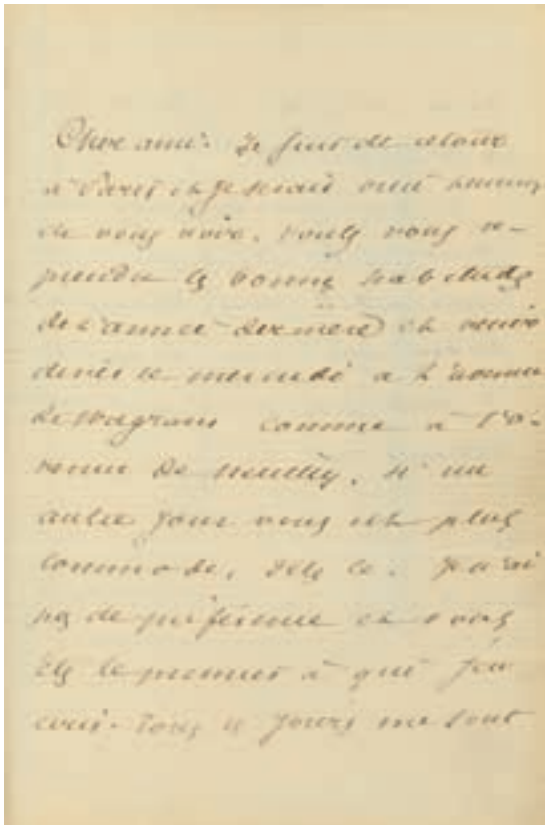 Cher ami. Je suis de retour
à Paris et je serais
de vous voir. voulez vous re-
prendre les bonnes habitudes
de l'année dernière et venir
diner le mercredi à l'avenue
de Wagram comme à l'a-
venue de Neuilly. si un
autre jour vous est plus
commode, dites le. Je n'ai
pas de préférence et vous
êtes le premier à qui j'en
écris. Tous les jours me sont